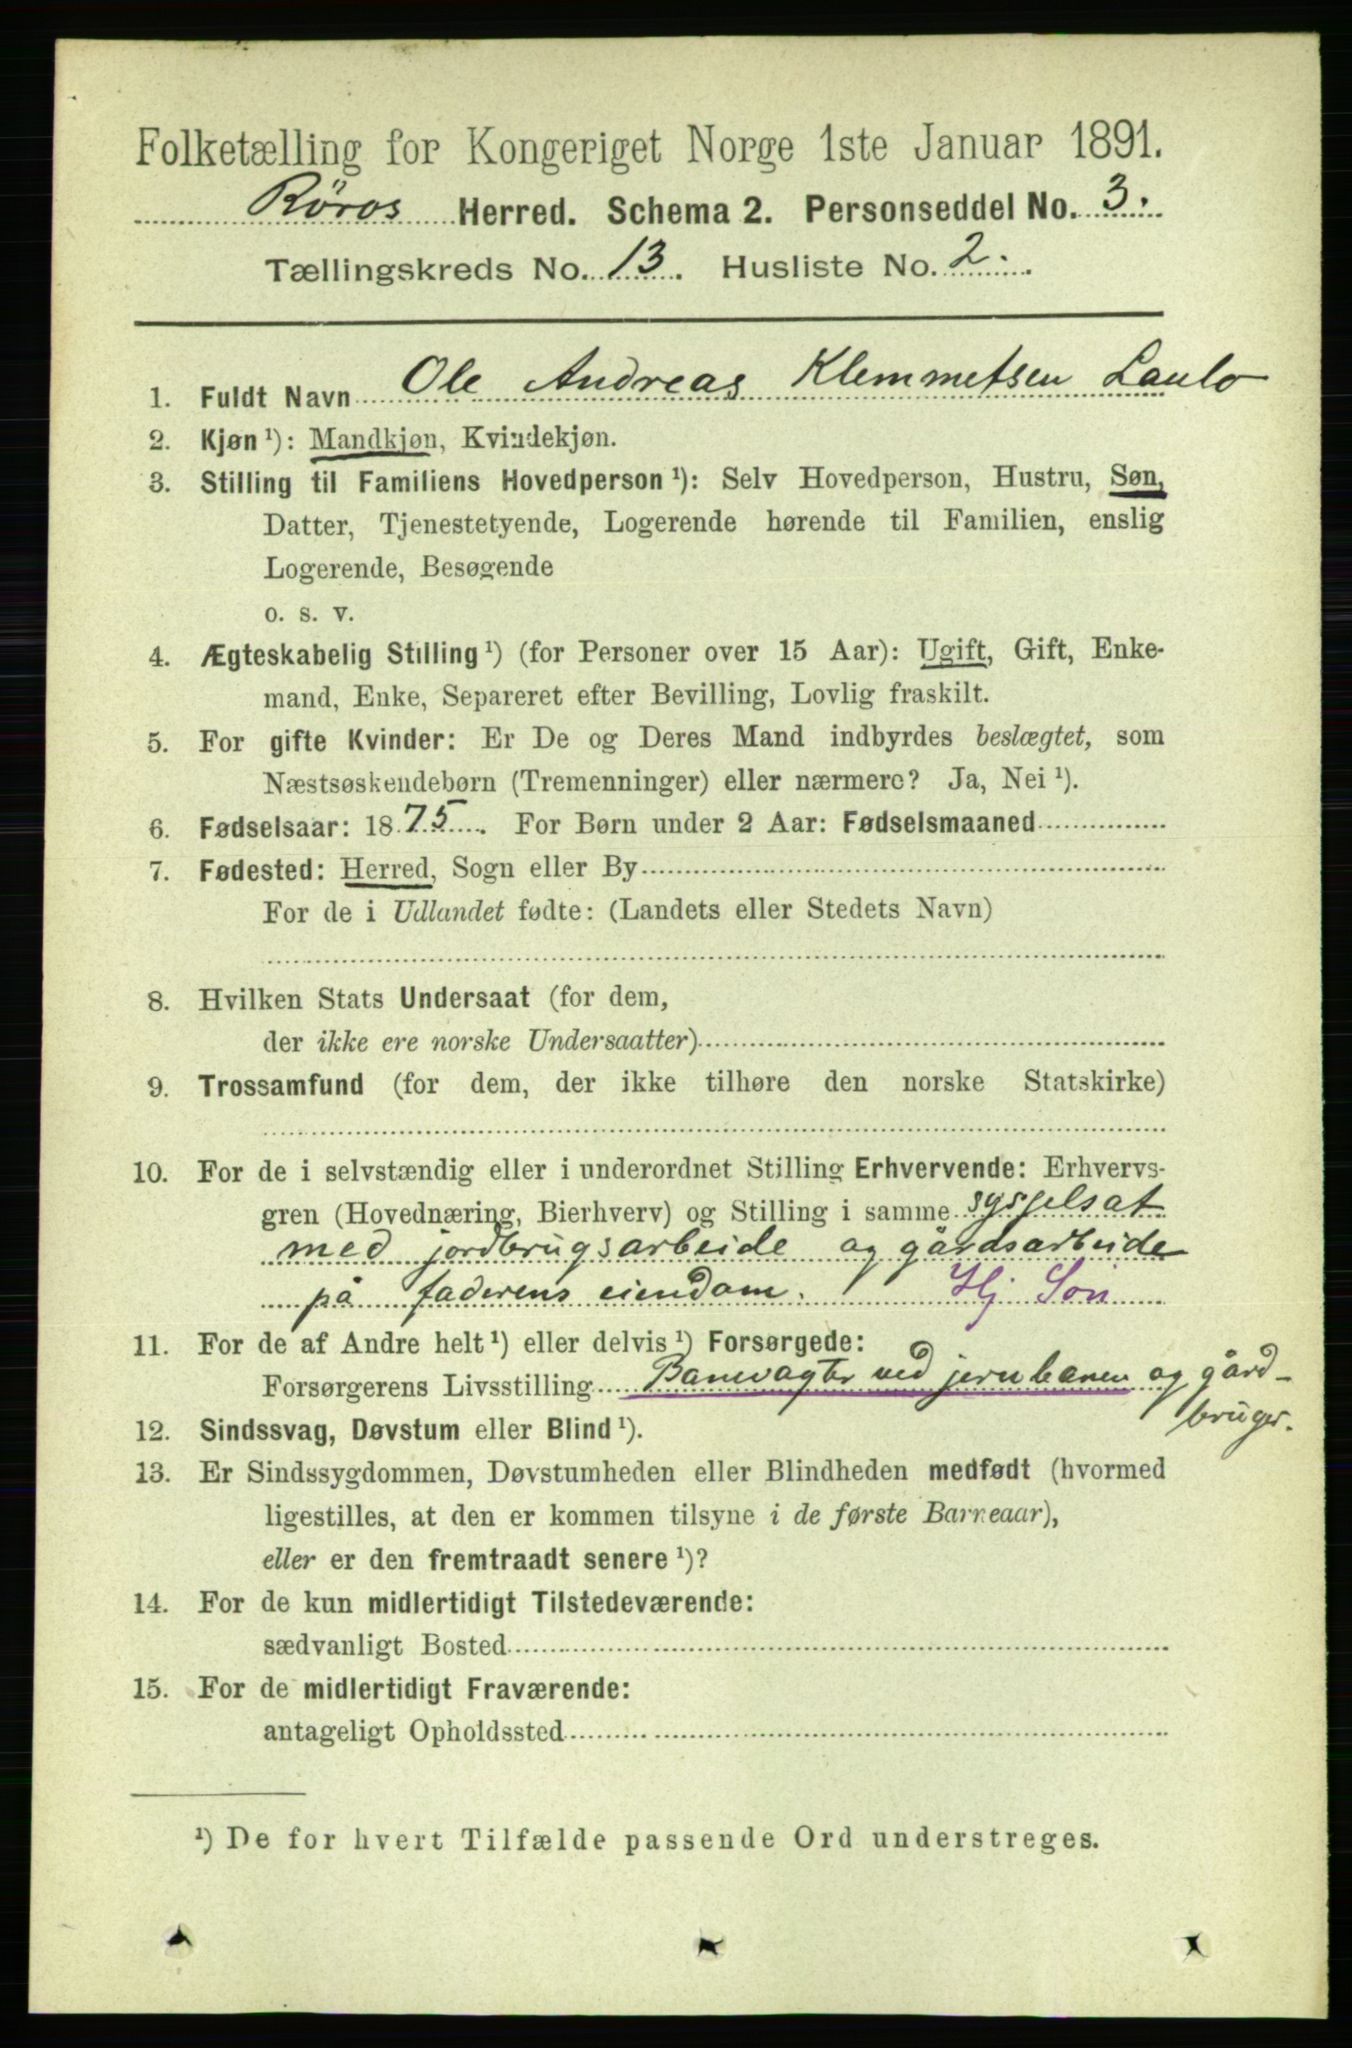 Folketælling for Kongeriget Norge 1ste Januar 1891.
Röros Herred. Schema 2. Personseddel No. 3.
Tællingskreds No. 13. Husliste No. 2.
1. Fuldt Navn Ole Andreas Klemmetsen Laulo
2. Kjøn ¹): Mandkjøn, Kvindekjøn.
3. Stilling til Familiens Hovedperson ¹): Selv Hovedperson, Hustru, Søn,
Datter, Tjenestetyende, Logerende hørende til Familien, enslig
Logerende, Besøgende
o. s. v.
4. Ægteskabelig Stilling ¹) (for Personer over 15 Aar): Ugift, Gift, Enke-
mand, Enke, Separeret efter Bevilling, Lovlig fraskilt.
5. For gifte Kvinder: Er De og Deres Mand indbyrdes beslægtet, som
Næstsøskendebørn (Tremenninger) eller nærmere? Ja, Nei ¹).
6. Fødselsaar: 1875. For Børn under 2 Aar: Fødselsmaaned
7. Fødested: Herred, Sogn eller By
For de i Udlandet fødte: (Landets eller Stedets Navn)
8. Hvilken Stats Undersaat (for dem,
der ikke ere norske Undersaatter)
9. Trossamfund (for dem, der ikke tilhøre den norske Statskirke)
10. For de i selvstændig eller i underordnet Stilling Erhvervende: Erhvervs-
gren (Hovednæring, Bierhverv) og Stilling i samme sysselsat
med jordbrugsarbeide og gårdsarbeide
på faderens eiendom. Hj Søn
11. For de af Andre helt ¹) eller delvis ¹) Forsørgede:
Forsørgerens Livsstilling Banevagter ved jernbanen og gård-
bruger.
12. Sindssvag, Døvstum eller Blind ¹).
13. Er Sindssygdommen, Døvstumheden eller Blindheden medfødt (hvormed
ligestilles, at den er kommen tilsyne i de første Barneaar),
eller er den fremtraadt senere ¹)?
14. For de kun midlertidigt Tilstedeværende:
sædvanligt Bosted
15. For de midlertidigt Fraværende:
antageligt Opholdssted
¹) De for hvert Tilfælde passende Ord understreges.